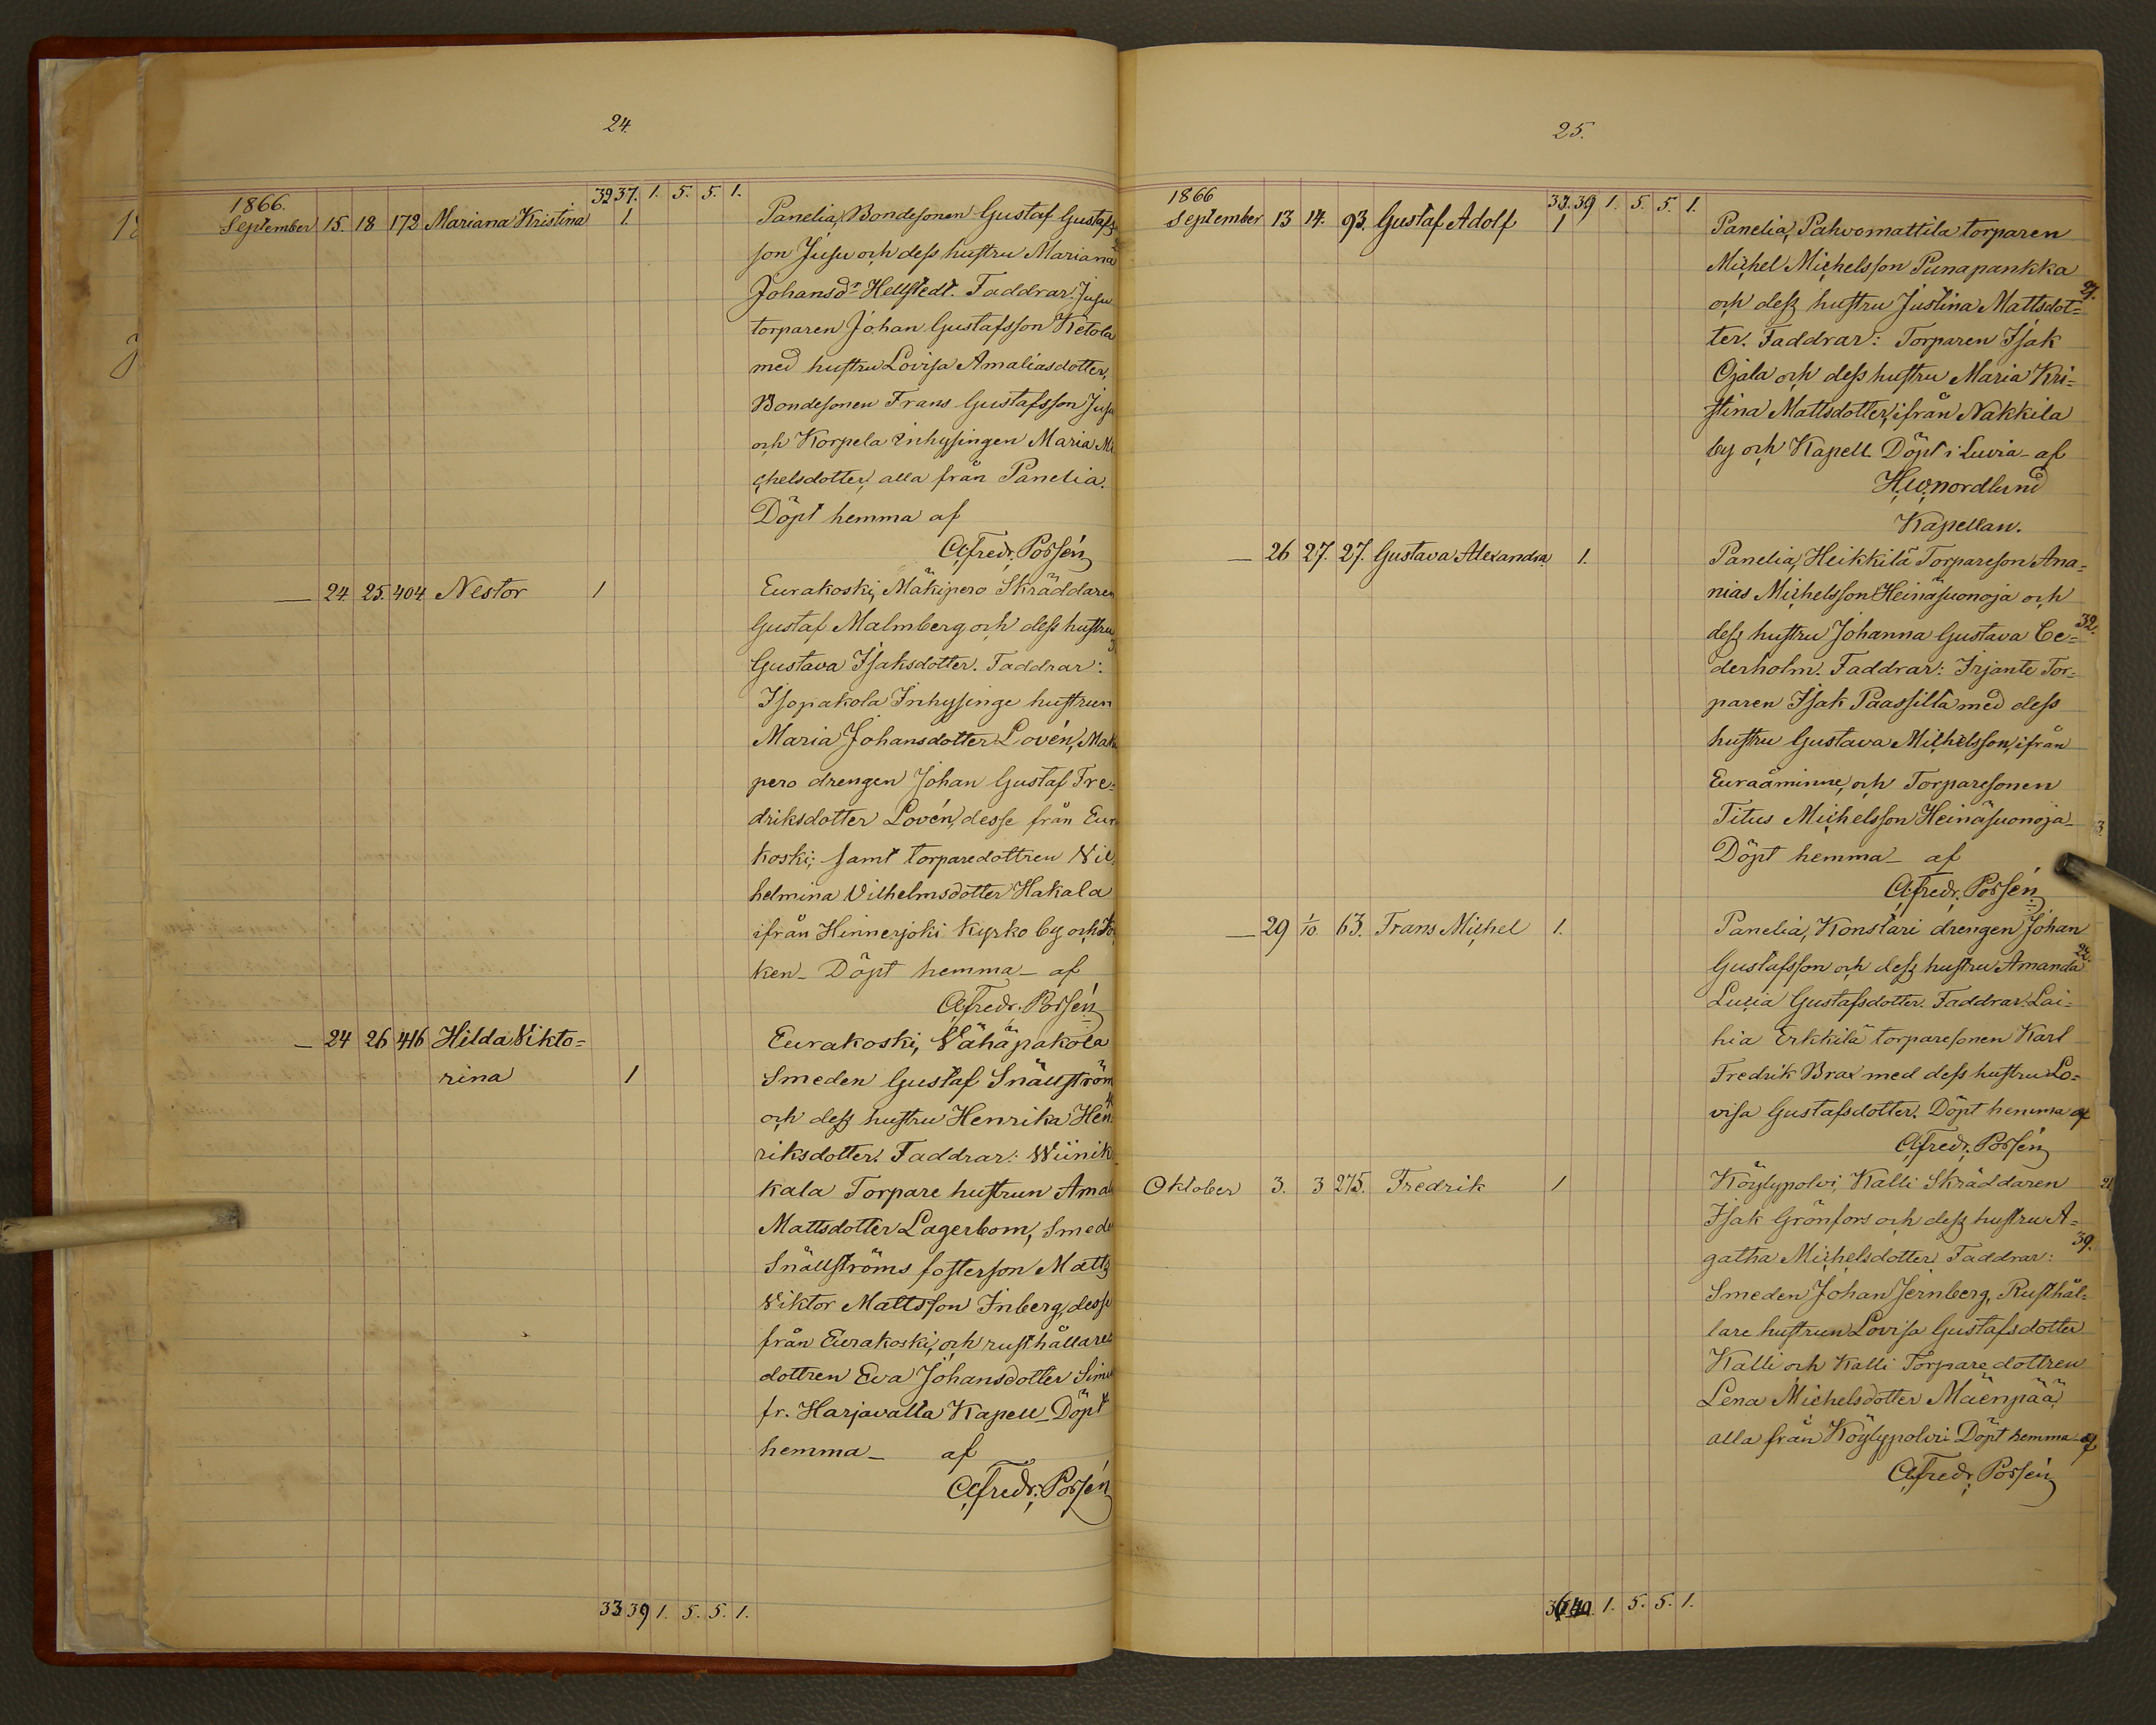 24.
32 37. 1. 5. 5. 1.
1866.
September 15. 18 172 Mariana Kristina 1. Panelia, Bondesonen Gustaf Gustafs
son Jusu och dess hustru Mariana
Johansdr Hellstedt. Faddrar: Jusu
torparen Johan Gustafsson Ketola
med hustru Lovisa Amaliasdotter,
Bondesonen Frans Gustafsson Jusu
och Korpela Inhysingen Maria Mi
chelsdotter, alla från Panelia.
Döpt hemma af
Alfredr. Possén
— 24 25. 404 Nestor 1 Eurakoski, Mäkipero Skräddaren
Gustaf Malmberg och dess hustru
Gustava Isaksdotter. Faddrar:
Isopakola Inhysinge hustrun
Maria Johansdotter Lovén, Mäki
pero drengen Johan Gustaf Fre-
driksdotter Lovén, desse från Eura
koski; samt torparedottren Vil
helmina Vilhelmsdotter Hakala
ifrån Hinnerjoki Kyrko by och
ken_ Döpt hemma_ af
Alfredr. Possén
— 24 26 416 Hilda Vikto= Eurakoski, Vähäpakola
rina 1 Smeden Gustaf Snällström
och dess hustru Henrika Hen
riksdotter. Faddrar: Wiinik
kala Torpare hustrun Amal
Mattsdotter Lagerbom, Smede
Snällströms fosterson Matts
Viktor Mattsson Inberg, desse
från Eurakoski, och rusthållare
dottren Eva Johansdotter Simu
fr. Harjavalta Kapell_ Döpt
hemma_ af
Alfredr. Possén
33 39 1. 5. 5. 1.
25.
33. 39 1. 5. 5. 1.
1866
September 13 14. 93. Gustaf Adolf 1 Panelia, Pahvomattila torparen
Michel Michelsson Punapankka
27.
och dess hustru Justina Mattsdot=
ter. Faddrar: Torparen Isak
Ojala och dess hustru Maria Kri=
stina Mattsdotter, ifrån Nakkila
by och Kapell. Döpt i Luvia_ af
H.W. Nordlund
Kapellan.
— 26 27. 27. Gustava Alexandra 1. Panelia, Heikkilä Torpareson Ana=
nias Michelsson Heinäsuonoja och
32.
dess hustru Johanna Gustava Ce=
derholm. Faddrar: Irjante Tor=
paren Isak Paassilta med dess
hustru Gustava Michelsson, ifrån
Euraåminne, och Torparesonen
Titus Michelsson Heinäsuonoja_
Döpt hemma_ af
Alfredr. Possén
— 29 1/10. 63. Frans Michel 1. Panelia, Konstari drengen Johan
22.
Gustafsson och dess hustru Amanda
Lucia Gustafsdotter. Faddrar. Lai=
hia Erkkilä torparesonen Karl
Fredrik Brax med dess hustru Lo=
visa Gustafsdotter. Döpt hemma af
Alfredr. Possén
Oktober 3. 3 275. Fredrik 1 Köylypolvi, Kalli Skräddaren
Isak Grönfors och dess hustru A=
39.
gatha Michelsdotter Faddrar:
Smeden Johan Jernberg, Rusthål=
lare hustrun Lovisa Gustafsdotter
Kalli och Kalli Torpare dottren
Lena Michelsdotter Mäenpää,
alla från Köylypolvi Döpt hemma_ af
Alfredr. Possén
1. 5. 5. 1.